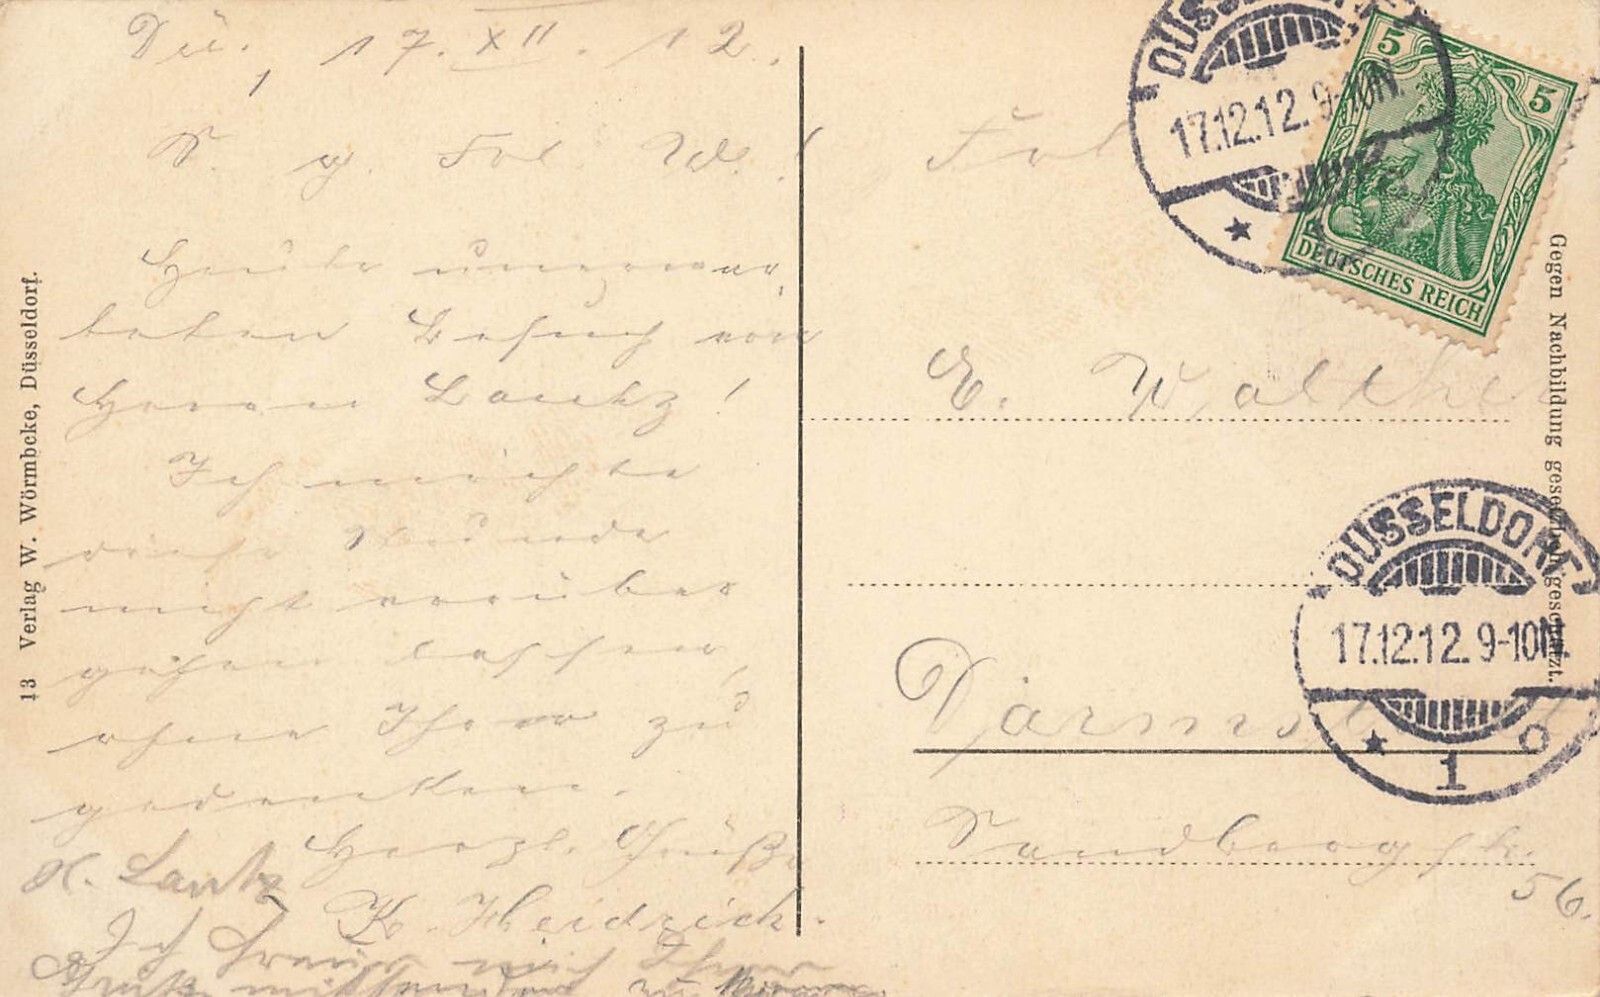 Dü., 17. XII. 12.
S. g. Frl. W.!
Heute unerwar-
teten Besuch von
Herrn Lantz!
Ich möchte
diese Stunde
nicht vorüber
gehen lassen,
ohne Ihrer zu
gedenken.
Herzl. Grüße
K. Heidrich.
K. Lantz
Ich freue mich Ihnen
Frl.
E. Walthe
Darmst
Sandbergstr.
56.
DÜSSELDORF
17.12.12. 9-10N.
5
5
DEUTSCHES REICH
DÜSSELDORF
17.12.12. 9-10N.
1 o
13 Verlag W. Wörmbcke, Düsseldorf.
Gegen Nachbildung gesetzlich geschützt.